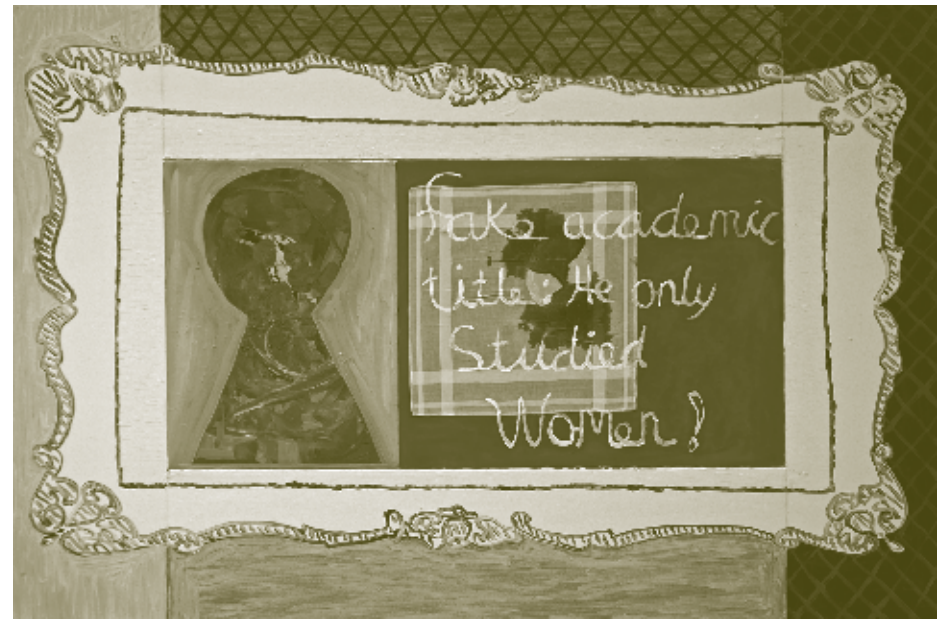 Fake academic
title: He only
Studied
Women!